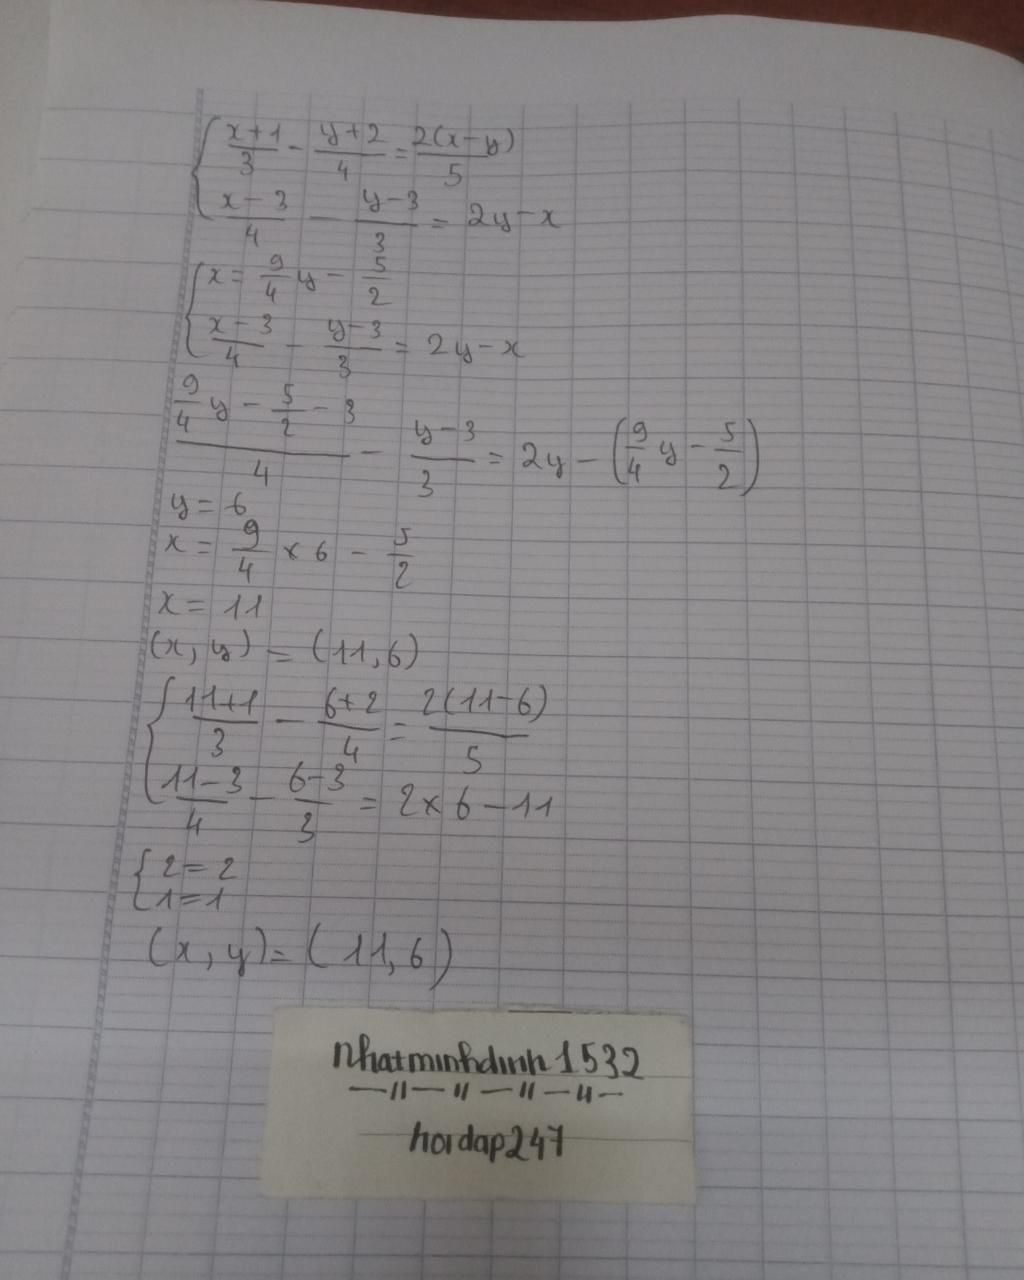 { (x+1)/3 - (y+2)/4 = 2(x-y)/5
(x-3)/4 - (y-3)/3 = 2y-x
{ x = 9/4 y - 5/2
(x-3)/4 - (y-3)/3 = 2y-x
(9/4 y - 5/2 - 3)/4 - (y-3)/3 = 2y - (9/4 y - 5/2)
y = 6
x = 9/4 × 6 - 5/2
x = 11
(x, y) = (11, 6)
{ (11+1)/3 - (6+2)/4 = 2(11-6)/5
(11-3)/4 - (6-3)/3 = 2×6-11
{ 2 = 2
1 = 1
(x, y) = (11, 6)
nhatminhdinh1532
—//—//—//—//—
hoidap247